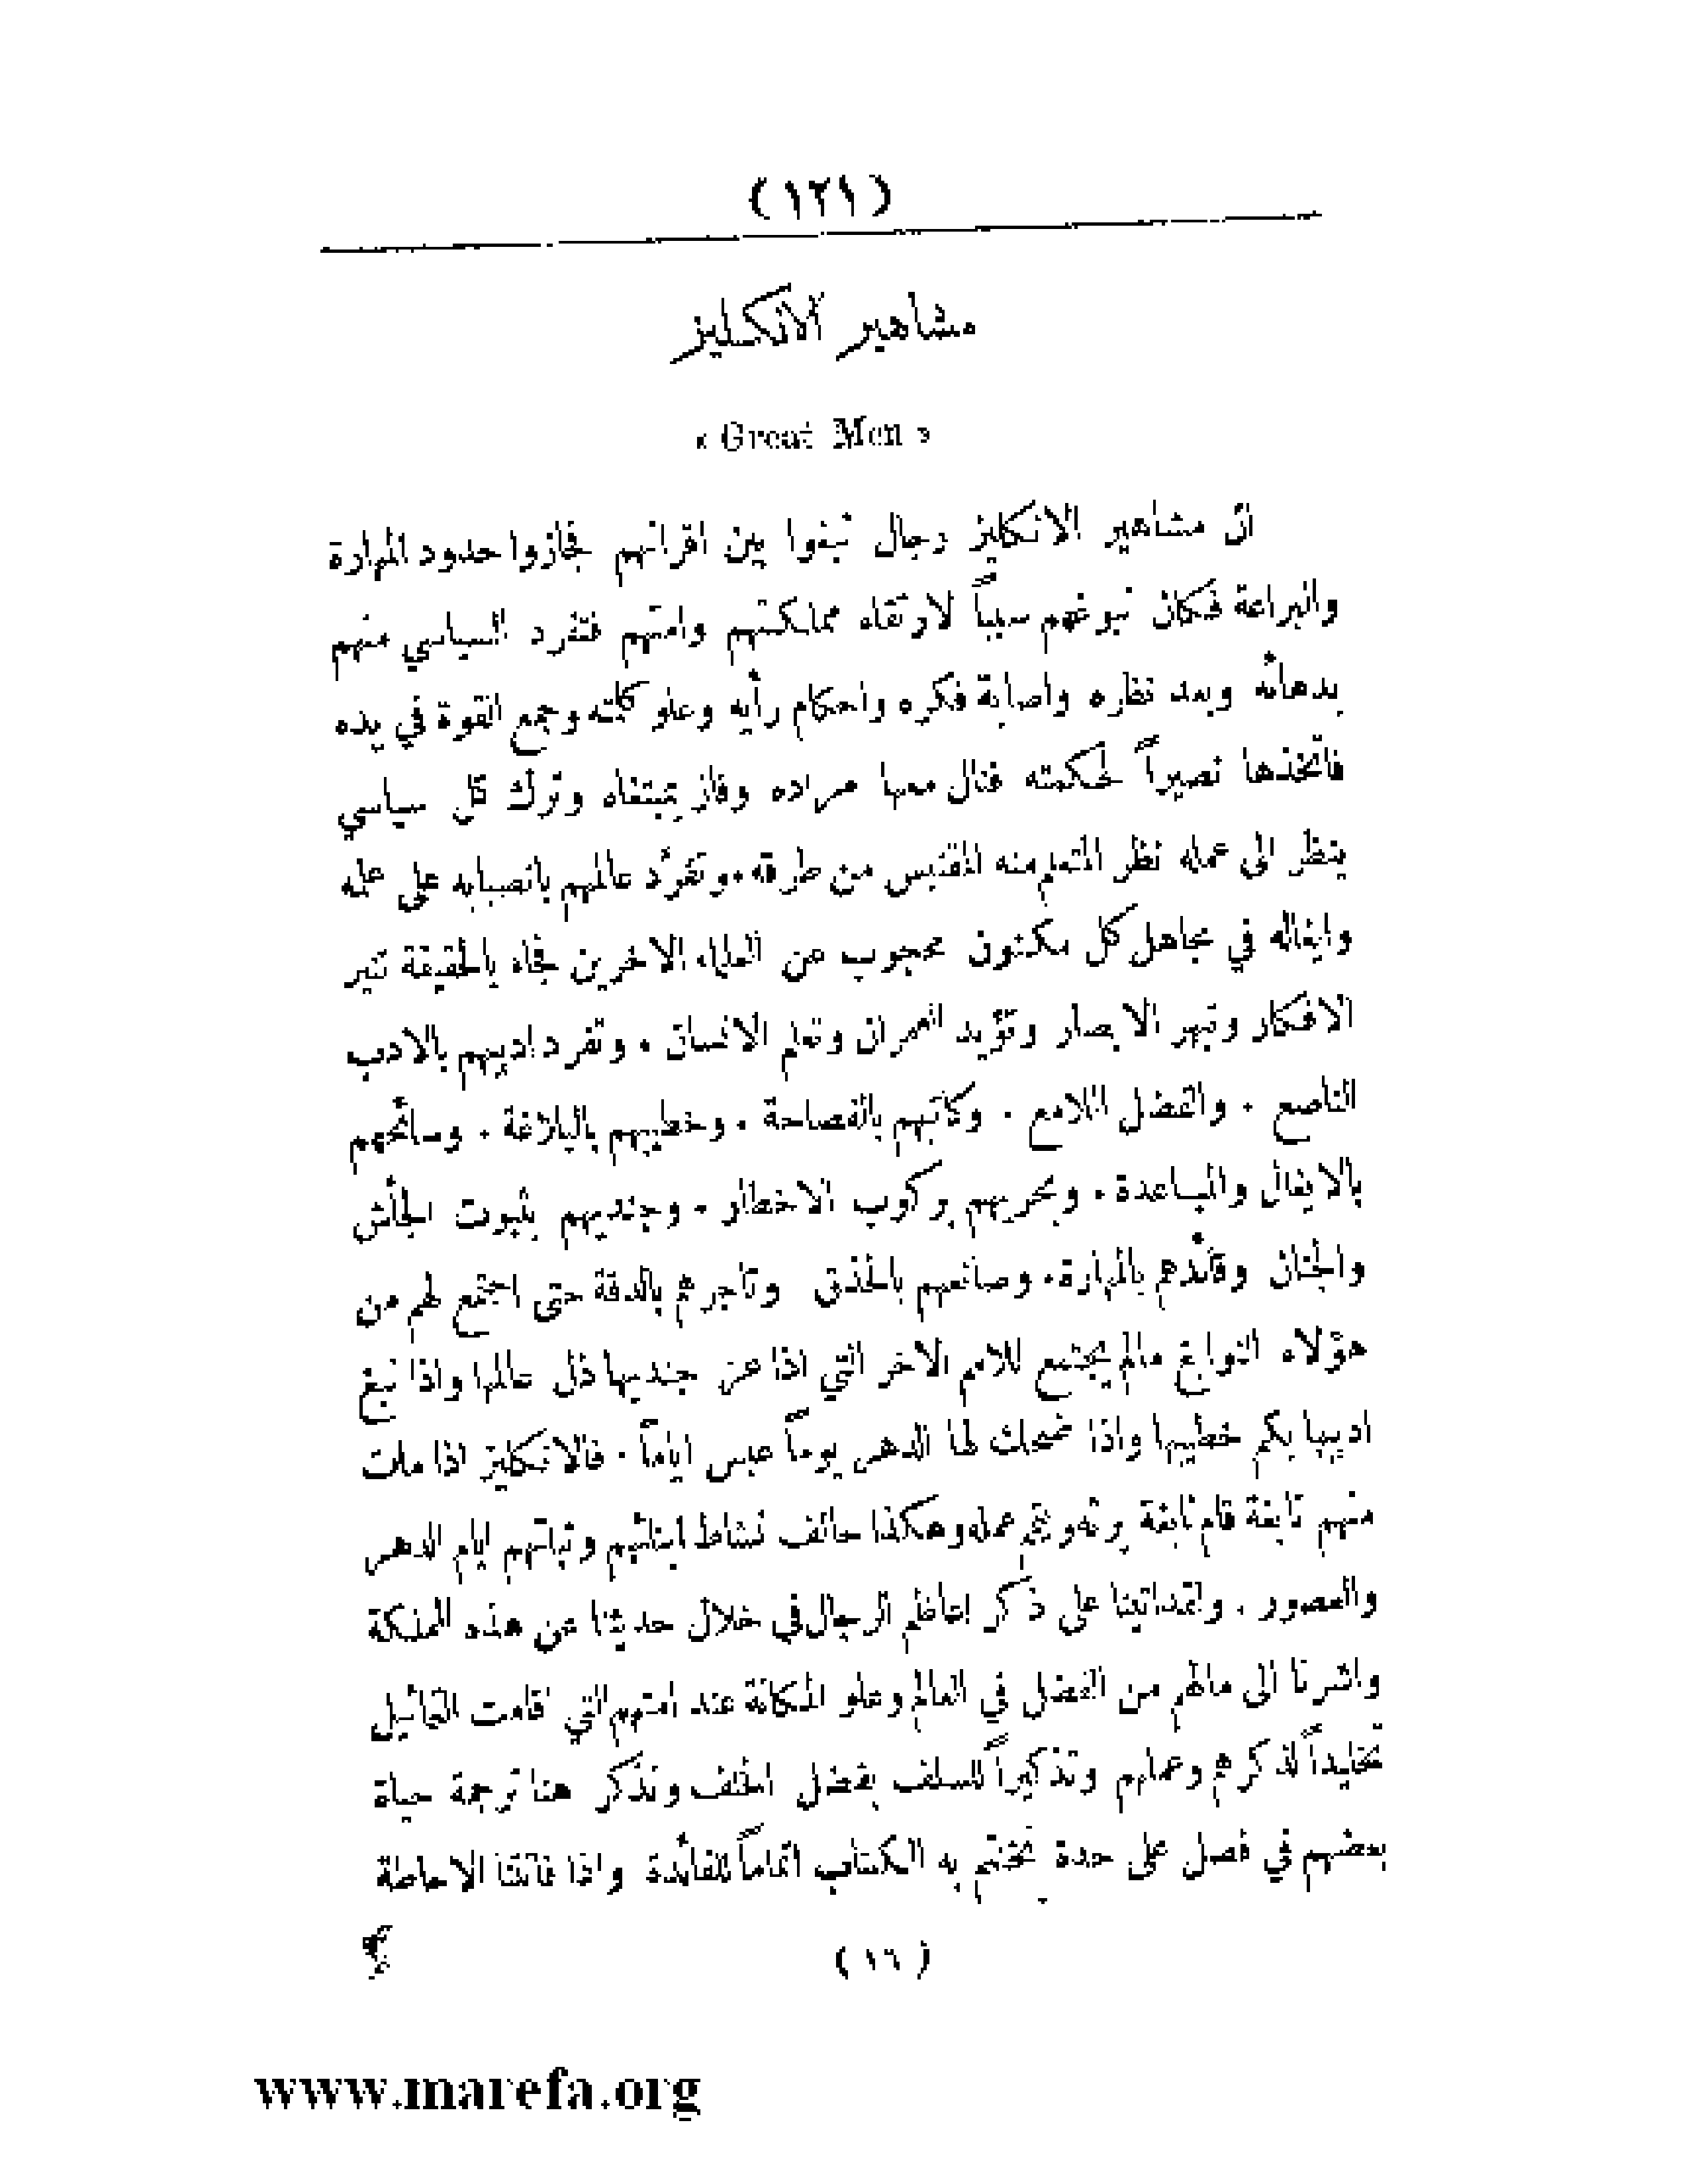 (١٢١)
مشاهير الانكليز
« Great Men »
ان مشاهير الانكليز رجال نبغوا بين اقرانهم فجازوا حدود المهارة
والبراعة فكان نبوغهم سبباً لارتقاء مملكتهم وامتهم فتفرد السياسي منهم
بدهائه وبعد نظره واصابة فكره واحكام رأيه وعلو كلمته وجمع القوة في يده
فاتخذها نصيراً لحكمته فنال معها مراده وفاز بمبتغاه وترك كل سياسي
ينظر الى عمله نظر المتعلم منه المقتبس من طرقه. وتفرّد عالمهم بانصبابه على علمه
وايغاله في مجاهل كل مكنون محجوب عن العلماء الاخرين فجاء بالحقيقة تنير
الافكار وتبهر الابصار وتؤيد العمران وتعلم الانسان . وتفرد اديبهم بالادب
الناصع . والفضل اللامع . وكاتبهم بالفصاحة . وخطيبهم بالبلاغة . وسائحهم
بالايغال والمباعدة . وبحريهم بركوب الاخطار . وجنديهم بثبوت الجأش
والجنان وقائدهم بالمهارة . وصانعهم بالحذق وتاجرهم بالدقة حتى اجتمع لهم من
هؤلاء النوابغ مالم يجتمع للامم الاخر التي اذا عز جنديها ذل عالمها واذا نبغ
اديبها بكم خطيبها واذا ضحك لها الدهر يوماً عبس اياماً . فالانكليز اذا مات
منهم نابغة قام نابغة يرثه ويتم عمله وهكذا حالف نشاط ابنائهم وثباتهم ايام الدهر
والعصور . ولقد اتينا على ذكر اعاظم الرجال في خلال حديثنا عن هذه المملكة
واشرنا الى مالهم من الفضل في العالم وعلو المكانة عند امتهم التي اقامت التماثيل
تخليداً لذكرهم وعملهم وتذكيراً للسلف بفضل الخلف ونذكر هنا ترجمة حياة
بعضهم في فصل على حدة نختتم به الكتاب اتماماً للفائدة واذا فاتتنا الاحاطة
(١٦)
www.marefa.org